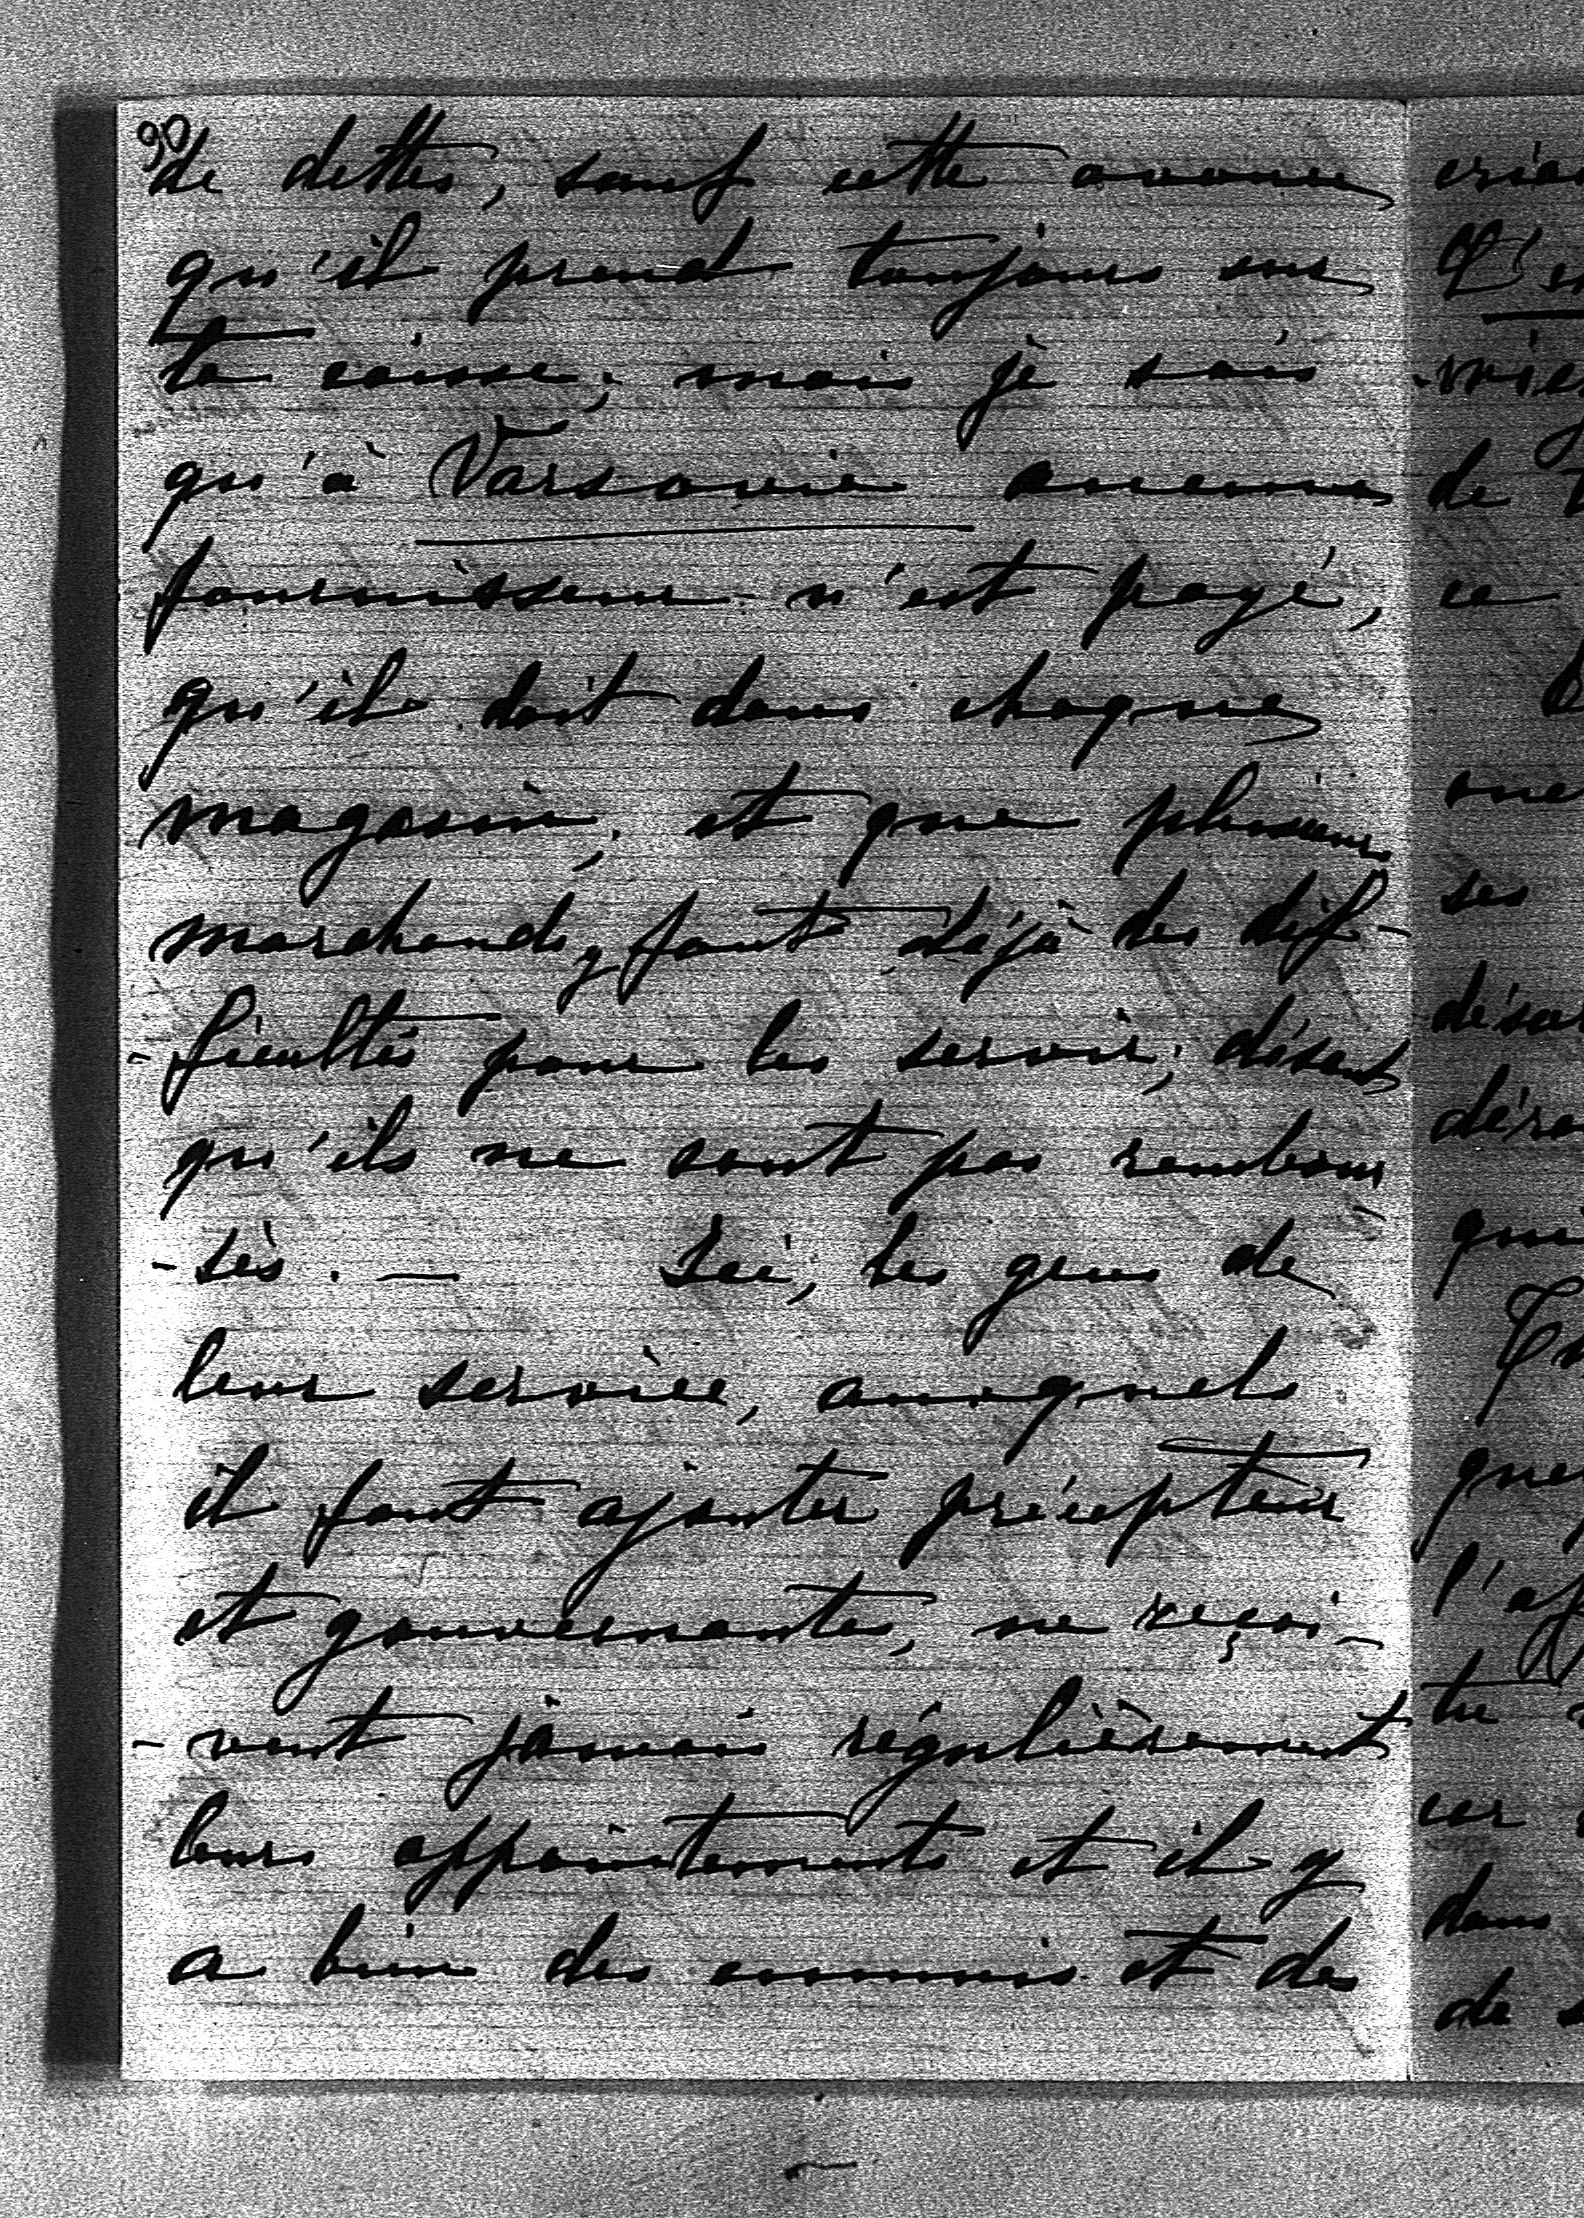 90
de dettes, sauf cette avance
qu'il prend toujours sur
ta caisse; mais je sais
qu'à Varsovie aucun
fournisseur n'est payé,
qu'il doit dans chaque
magasin, et que plusieurs
marchands, font déjà des dif-
-ficultés pour les servir, disant
qu'ils ne sont pas rembour
-sés. — Ici, les gens de
leur service, auxquels
il faut ajouter précepteur
et gouvernantes, ne reçoi-
-vent jamais régulièrement
leurs appointements et il y
a bien des ennuis et des